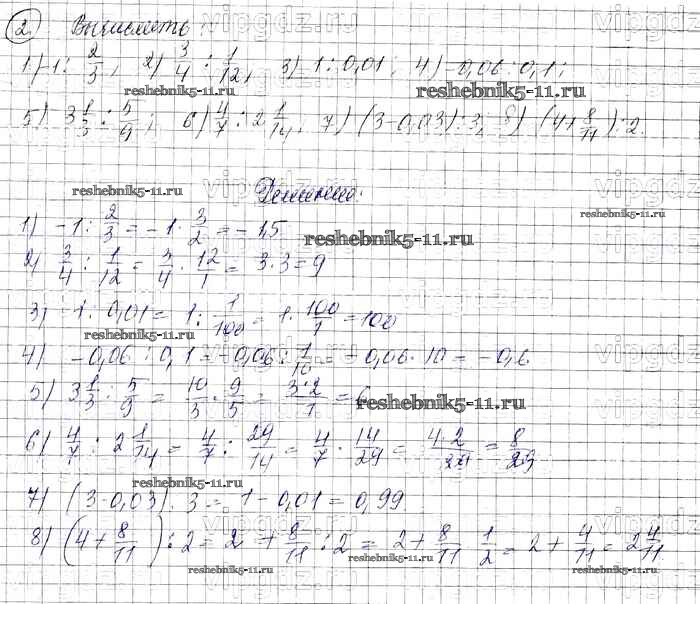 2. Вычислить:
1) -1 : 2/3, 2) 3/4 : 1/12, 3) 1 : 0,01; 4) -0,06 : 0,1;
5) 3 1/3 : 5/9; 6) 4/7 : 2 1/14, 7) (3-0,03) : 3, 8) (4+8/11) : 2.
Решение:
1) -1 : 2/3 = -1 · 3/2 = -1,5
2) 3/4 : 1/12 = 3/4 · 12/1 = 3·3 = 9
3) -1 : 0,01 = 1 : 1/100 = 1 · 100/1 = 100
4) -0,06 : 0,1 = -0,06 : 1/10 = -0,06 · 10 = -0,6
5) 3 1/3 : 5/9 = 10/3 · 9/5 = 3·2/1 = 6
6) 4/7 : 2 1/14 = 4/7 : 29/14 = 4/7 · 14/29 = 4·2/29 = 8/29
7) (3-0,03) : 3 = 1-0,01 = 0,99
8) (4+8/11) : 2 = 2 + 8/11 : 2 = 2 + 8/11 · 1/2 = 2 + 4/11 = 2 4/11
vipgdz.ru
reshebnik5-11.ru